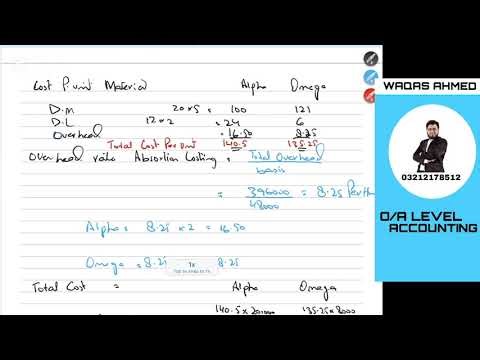 Cost P unit Material Alpha Omega
D.M 20 x 5 = 100 121
D.L 12 x 2 = 24 6
Overhead 16.50 8.25
Total Cost Per unit 140.5 135.25
Overhead ratio Absorption Costing = Total Overhead
basis
= 396000 = 8.25 Per
48000
Alpha = 8.25 x 2 = 16.50
Omega = 8.25 8.25
1x
Total Cost = Alpha Omega
140.5 x 135.25 x 8000
WAQAS AHMED
03212178512
O/A LEVEL
ACCOUNTING